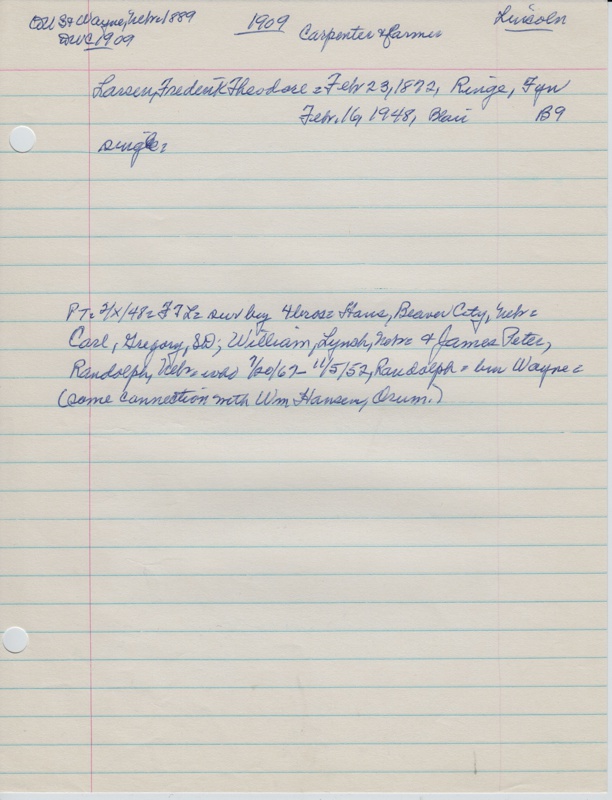 Wayne, Nebr. 1889 1909 Carpenter & farmer Lincoln
DWC 1909
Larsen, Frederik Theodore = Feb 23, 1872, Ringe, Fyn
Feb. 16, 1948, Blair B9
single =
PT = 2/X/48 = F T L = surv by 4 bros = Hans, Beaver City, Nebr =
Carl, Gregory, SD; William, Lynch, Nebr = & James Peter,
Randolph, Nebr = who 11/5/52, Randolph = bur Wayne =
(some connection with Wm Hansen, Orum.)